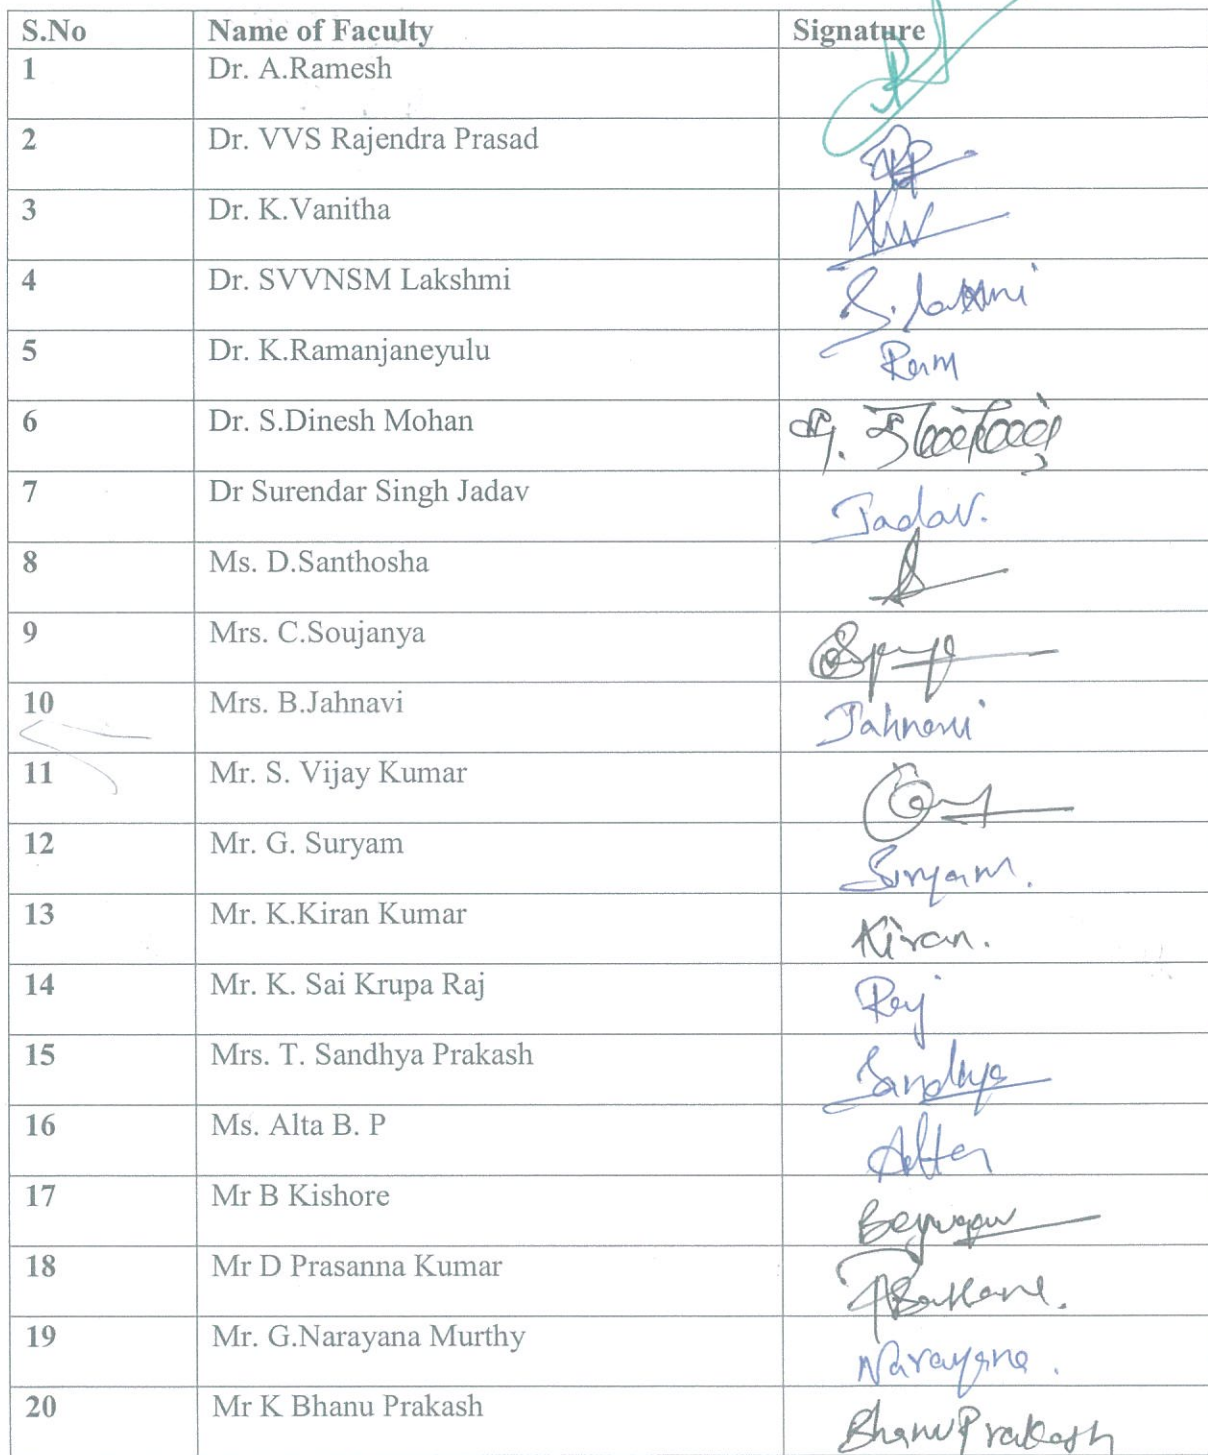 S.No Name of Faculty Signature
1 Dr. A.Ramesh
2 Dr. VVS Rajendra Prasad
3 Dr. K.Vanitha
4 Dr. SVVNSM Lakshmi S. Lakshmi
5 Dr. K.Ramanjaneyulu Ram
6 Dr. S.Dinesh Mohan
7 Dr Surendar Singh Jadav Jadav.
8 Ms. D.Santhosha
9 Mrs. C.Soujanya
10 Mrs. B.Jahnavi Jahnavi
11 Mr. S. Vijay Kumar
12 Mr. G. Suryam Suryam.
13 Mr. K.Kiran Kumar Kiran.
14 Mr. K. Sai Krupa Raj Raj
15 Mrs. T. Sandhya Prakash Sandhya
16 Ms. Alta B. P
17 Mr B Kishore
18 Mr D Prasanna Kumar
19 Mr. G.Narayana Murthy Narayana.
20 Mr K Bhanu Prakash Bhanu Prakash